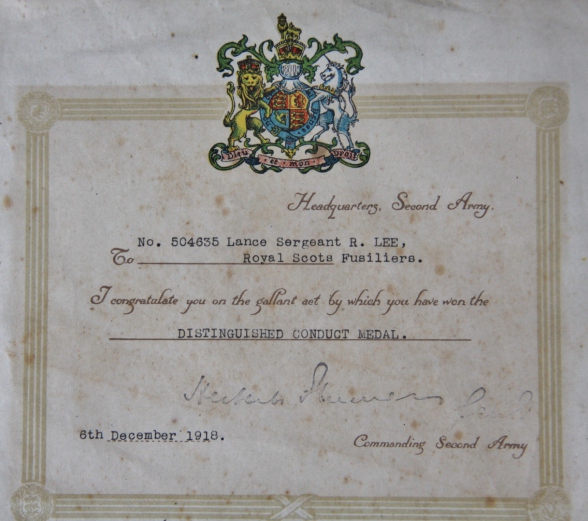 Dieu et mon droit
Headquarters, Second Army.
No. 504635 Lance Sergeant R. LEE,
To Royal Scots Fusiliers.
I congratulate you on the gallant act by which you have won the
DISTINGUISHED CONDUCT MEDAL.
6th December 1918.
Commanding Second Army